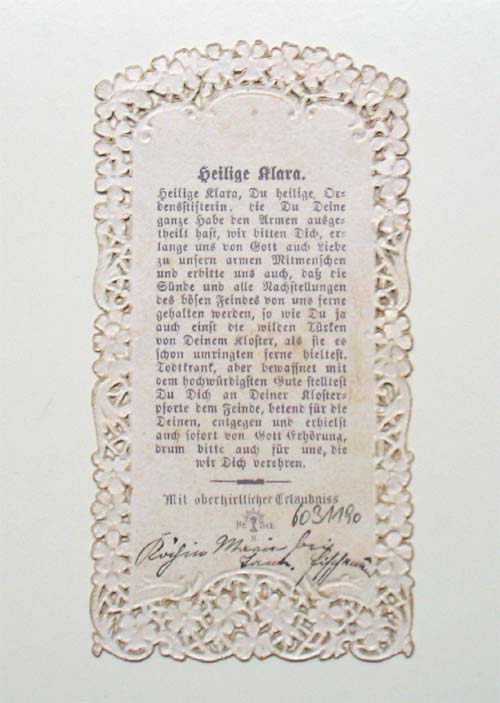 Heilige Klara.
Heilige Klara, Du heilige Or-
densstifterin, die Du Deine
ganze Habe den Armen ausge-
theilt hast, wir bitten Dich, er-
lange uns von Gott auch Liebe
zu unsern armen Mitmenschen
und erbitte uns auch, daß die
Sünde und alle Nachstellungen
des bösen Feindes von uns ferne
gehalten werden, so wie Du ja
auch einst die wilden Türken
von Deinem Kloster, als sie es
schon umringten ferne hieltest.
Todtkrank, aber bewaffnet mit
dem hochwürdigsten Gute stelltest
Du Dich an Deiner Kloster-
pforte dem Feinde, betend für die
Deinen, entgegen und erhielst
auch sofort von Gott Erhörung,
drum bitte auch für uns, die
wir Dich verehren.
Mit oberhirtlicher Erlaubniss
6031190
Köchin Maria